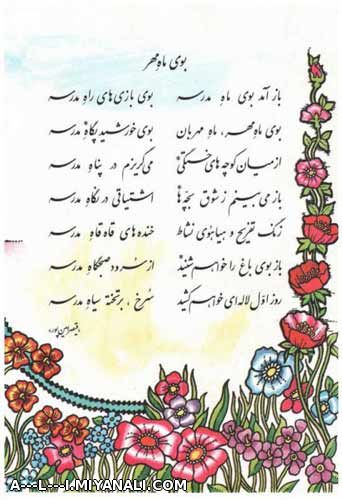 بوی ماه مهر
باز آمد بوی ماه مدرسه بوی بازی های راه مدرسه
بوی ماه مهر، ماه مهربان بوی خورشید پگاه مدرسه
از میان کوچه های خستگی می گریزم در پناه مدرسه
باز می بینم ز شوق بچّه ها اشتیاقی در نگاه مدرسه
زنگ تفریح و هیاهوی نشاط خنده های قاه قاه مدرسه
باز بوی باغ را خواهم شنید از سرود صبحگاه مدرسه
روز اوّل لاله ای خواهم کشید سرخ ، بر تخته سیاه مدرسه
قیصر امین پور
A---L---I.MIYANALI.COM